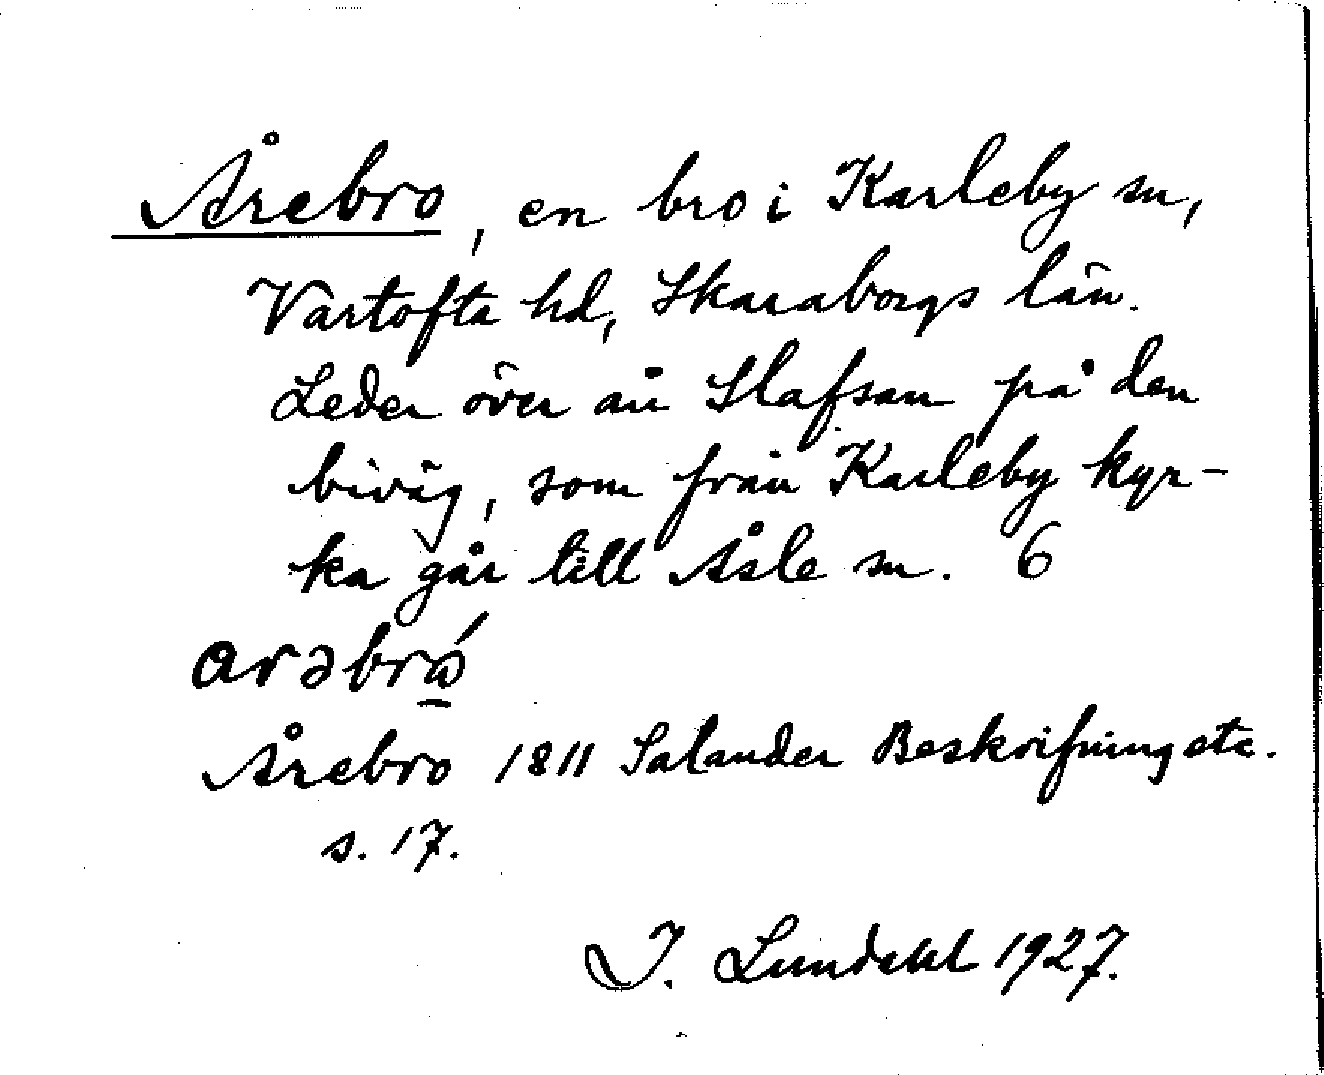 Årebro, en bro i Karleby sn,
Vartofta hd, Skaraborgs län.
Leder över ån Slafsan på den
biväg, som från Karleby kyr-
ka går till Åsle sn. 6
arəbrǻ
Årebro 1811 Salander Beskrifning etc.
s. 17.
I. Lundahl 1927.